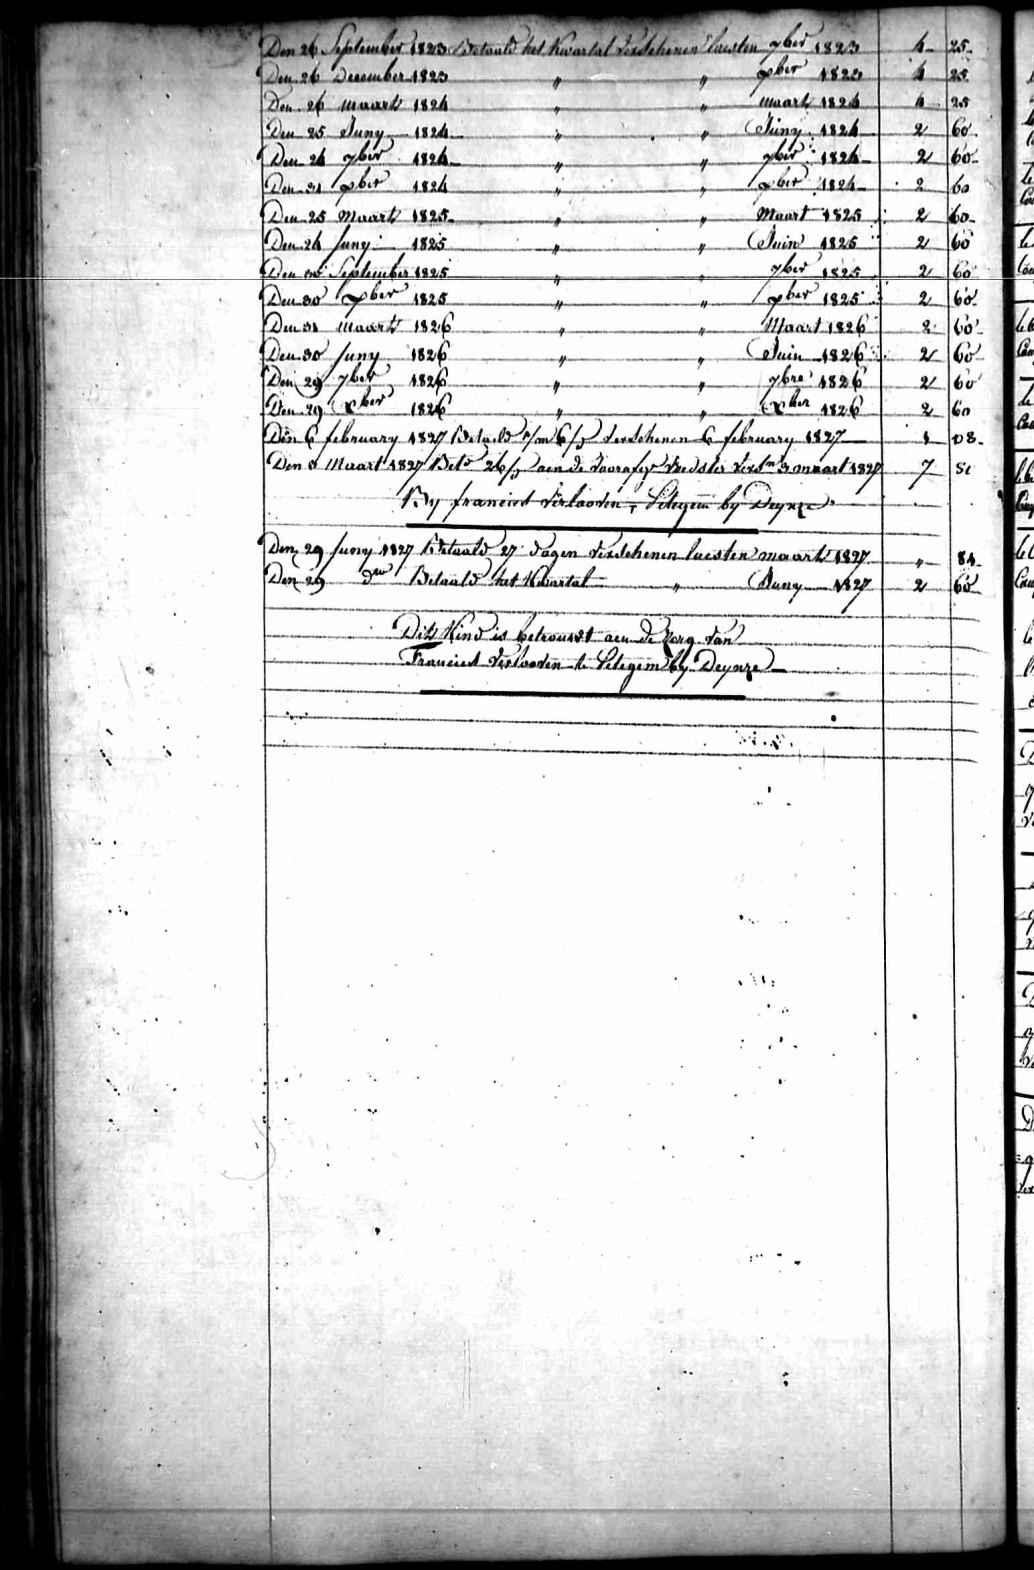 Den 26 September 1823 Betaald het Kwartal Verschenen laesten 7ber 1823 4 25
Den 26 December 1823 " " xber 1823 4 25
Den 26 maart 1824 " " maart 1824 4 25
Den 25 Juny 1824 " " Juny 1824 2 60
Den 24 7ber 1824 " " 7ber 1824 2 60
Den 31 xber 1824 " " xber 1824 2 60
Den 25 Maart 1825 " " Maart 1825 2 60
Den 24 Juny 1825 " " Juin 1825 2 60
Den 30 September 1825 " " 7ber 1825 2 60
Den 30 xber 1825 " " xber 1825 2 60
Den 31 maart 1826 " " Maart 1826 2 60
Den 30 Juny 1826 " " Juin 1826 2 60
Den 29 7ber 1826 " " 7bre 1826 2 60
Den 29 xber 1826 " " xber 1826 2 60
Den 6 february 1827 Betaald Verschenen 6 february 1827 1 08
Den 8 Maart 1827 Bet.d aen de Voedster 3 maart 1827 7
By francies Verlooven, Petegem by Deynze
Den 29 Juny 1827 Betaald 27 dagen Verschenen laesten maart 1827 " 84
Den 29 do Betaald het Kwartal " Juny 1827 2 60
Dit Kind is betrouwt aen de zorg van
Francies Verlooven te Petegem by Deynze